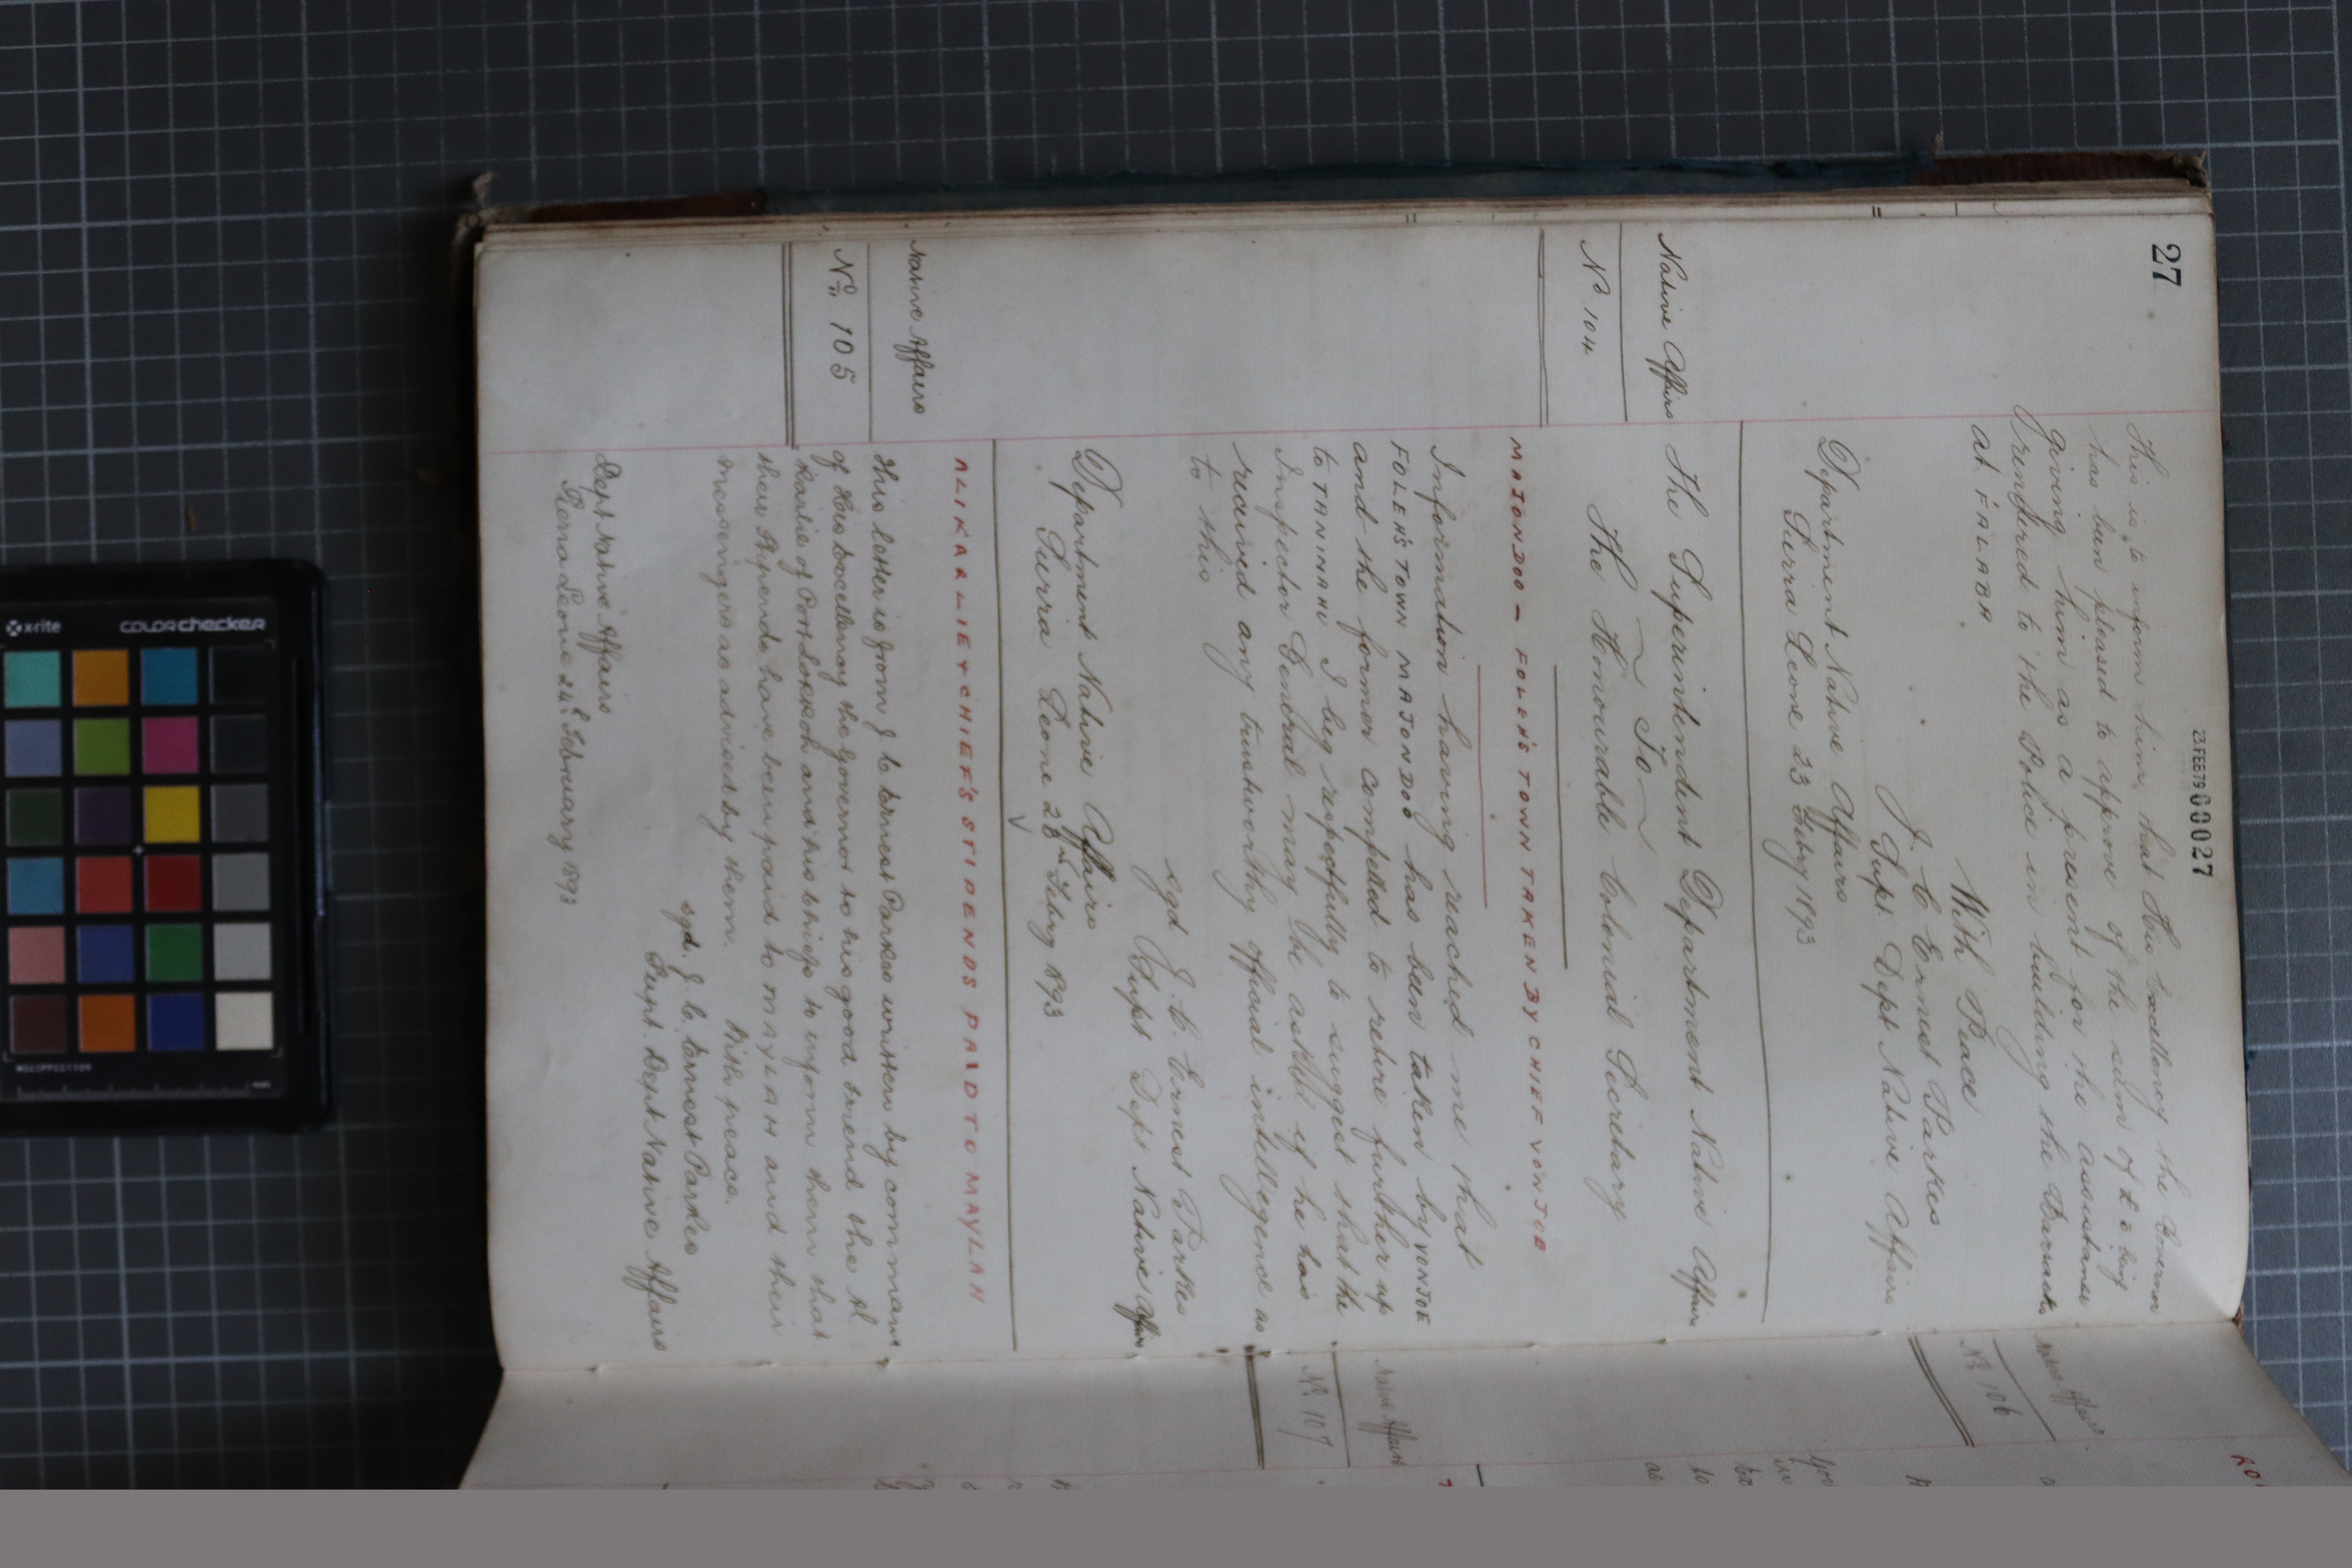 27
23 FEB 79 00027
This is to inform him that His Excellency the Governor
has been pleased to approve of the sum of £ 2 being
given him as a present for the assistance
rendered to the Police in building the Barracks
at FALABA.
With Peace
J. C. Ernest Parkes
Supt. Dept Native Affairs
Department Native Affairs
Sierra Leone 23 Feby 1893
Native Affairs
No 104
The Superintendent Department Native Affairs
To
The Honourable Colonial Secretary
MAJONDOO - FOLEH'S TOWN TAKEN BY CHIEF VONJOE
Information having reached me that
FOLEH'S TOWN MAJONDOO has been taken by VONJOE
and the former compelled to retire further up
to TANINAHU I beg respectfully to suggest that the
Inspector General may be asked if he has
received any trustworthy official intellegence as
to this
sgd J. C. Ernest Parkes
Supt Dept Native Affairs
Department Native Affairs
Sierra Leone 28th Feby 1893
Native Affairs
No 105
ALIKARLIE & CHIEF'S STIPENDS PAID TO MAYLAH
This letter is from J. C. Ernest Parkes written by command
of His Excellency the Governor to his good friend the Al
Karlie of Port Lokkoh and his Chiefs to inform them that
their Stipends have been paid to MAYLAH and their
messengers as advised by them. With peace.
sgd. J. C. Ernest Parkes
Supt. Dept Native Affairs
Dept Native Affairs
Sierra Leone 24th February 1893
Native Affairs
No 106
Native Affairs
No 107
x-rite
colorchecker